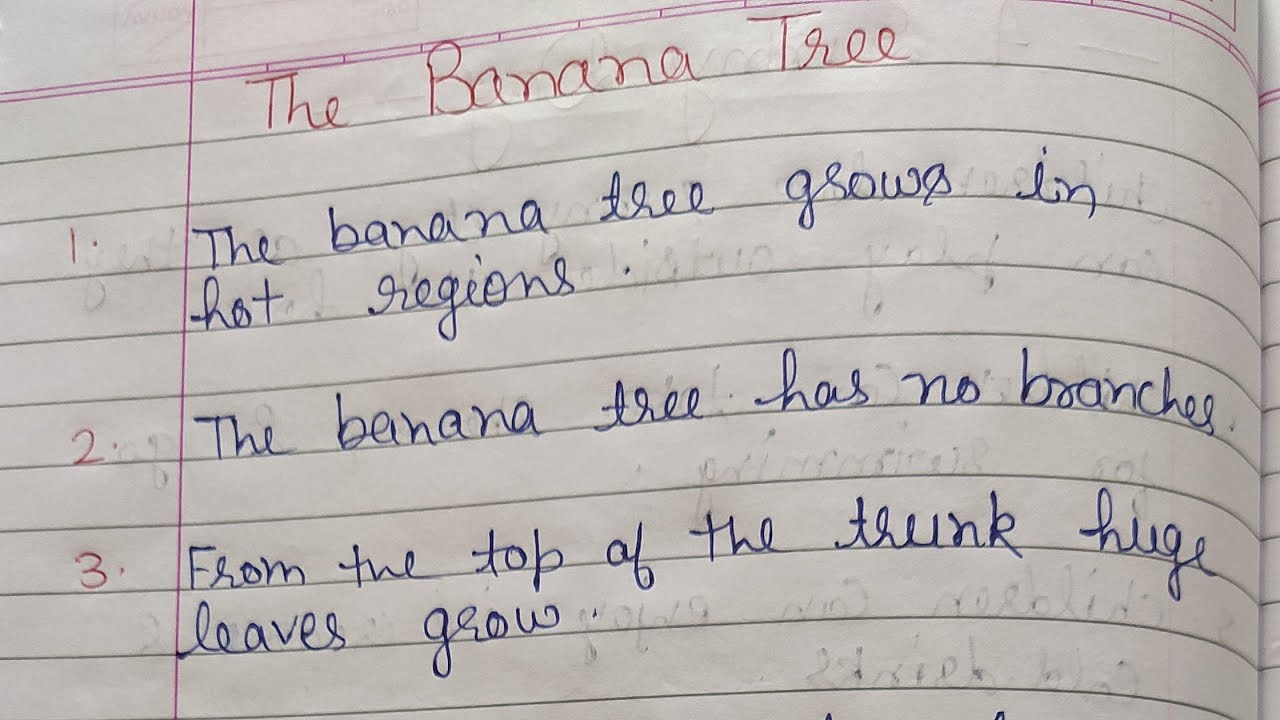 The Banana Tree
1. The banana tree grows in
hot regions.
2. The banana tree has no branches.
3. From the top of the trunk huge
leaves grow.